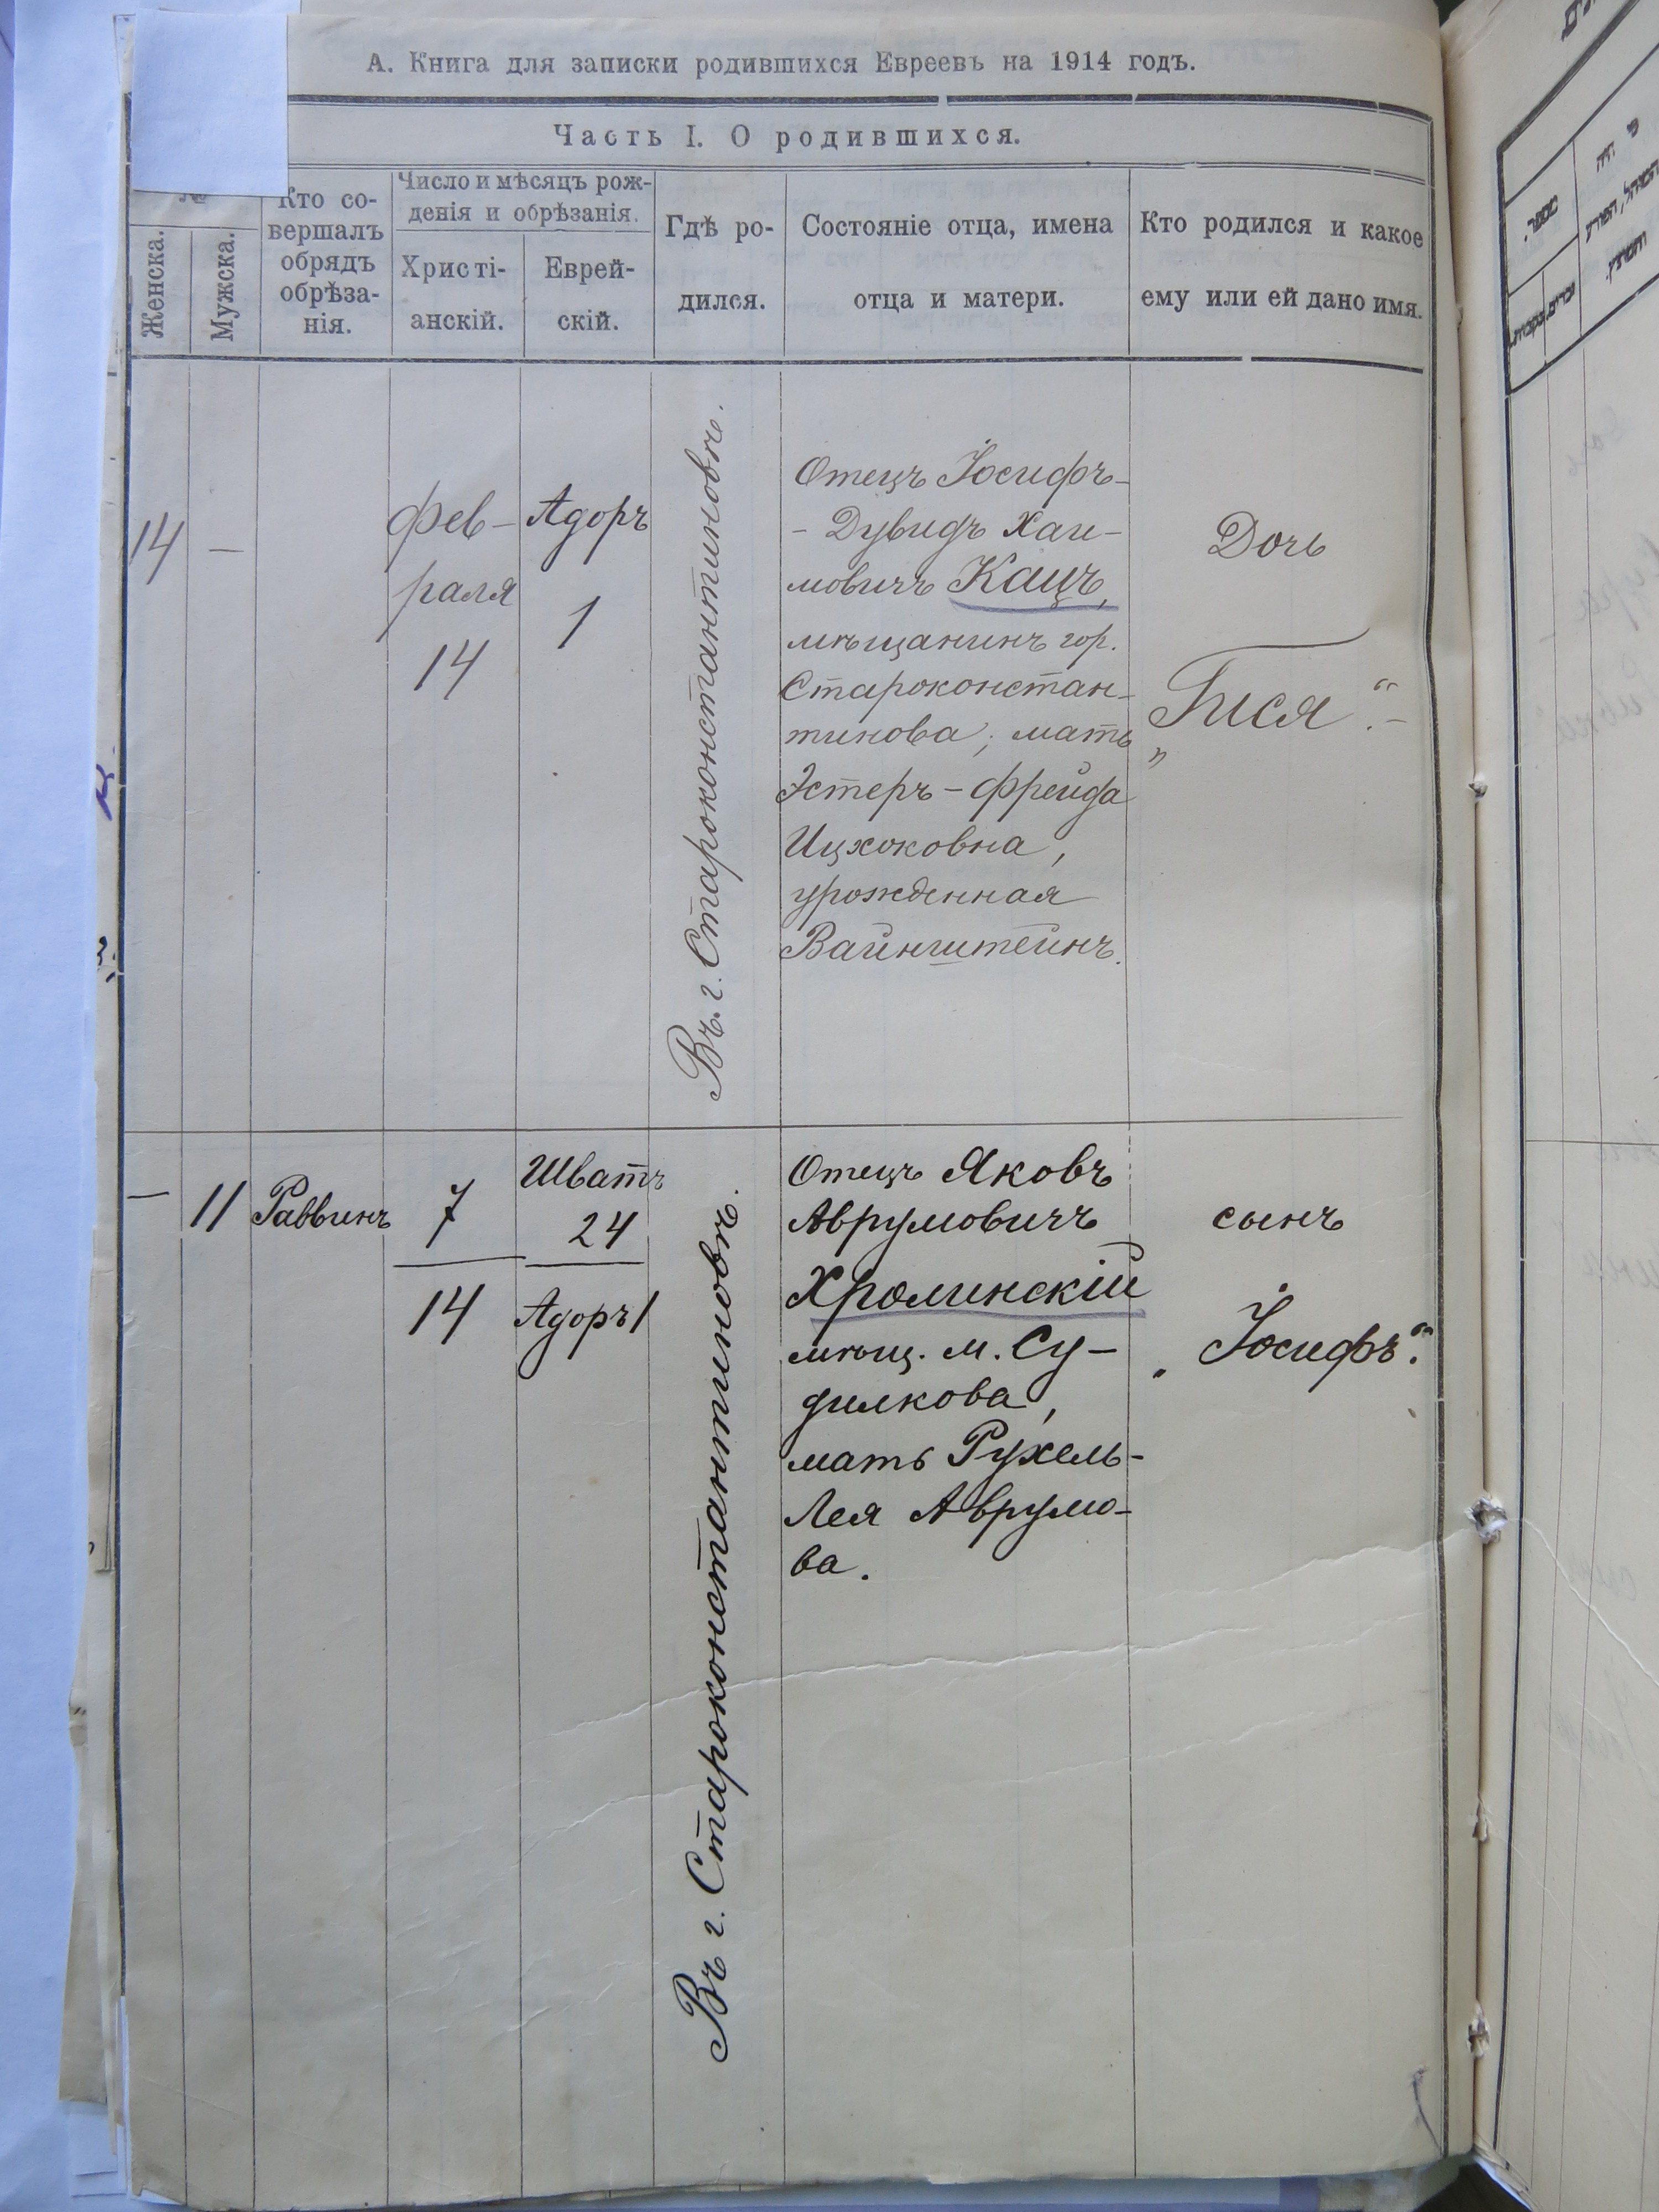 А. Книга для записки родившихся Евреевъ на 1914 годъ.
Часть I. О родившихся.
№
Женска.
Мужска.
Кто со-
вершалъ
обрядъ
обрѣза-
нія.
Число и мѣсяцъ рож-
денія и обрѣзанія.
Христі-
анскій.
Еврей-
скій.
Гдѣ ро-
дился.
Состояніе отца, имена
отца и матери.
Кто родился и какое
ему или ей дано имя.
14
—
Фев-
раля
14
Адоръ
1
Въ г. Староконстантиновѣ.
Отецъ Іосифъ-
- Дувидъ Хаи-
мовичъ Кацъ,
мѣщанинъ гор.
Староконстан-
тинова; мать
Эстеръ-Фрейда
Ицхоковна,
урожденная
Вайнштейнъ.
Дочь
„Гися“.-
—
11
Раввинъ
7
14
Шватъ
24
Адоръ 1
Въ г. Староконстантиновѣ.
Отецъ Яковъ
Аврумовичъ
Хролинскій
мѣщ. м. Су-
дилкова,
мать Рухель-
Лея Аврумо-
ва.
сынъ
„Іосифъ“.